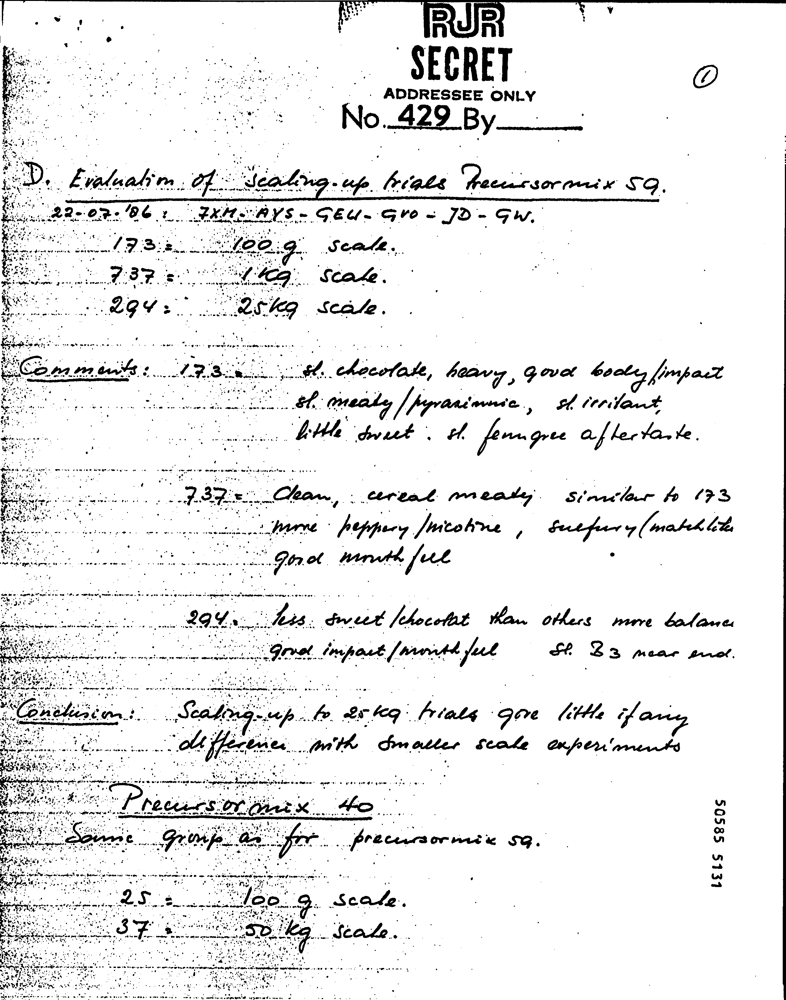 RJR
SECRET
ADDRESSEE ONLY
No. 429 By
1
D. Evaluation of scaling-up trials Precursormix 59.
22-07-'86: JXM- AYS - GEU- GVO - JD - GW.
173 = 100 g scale.
737 = 1 kg scale.
294 = 25 kg scale.
Comments: 173 = sl. chocolate, heavy, good body/impact
sl. meaty/pyrazinnic, sl. irritant,
little sweet. sl. fenugree aftertaste.
737 = Clean, cereal meaty similar to 173
more peppery/nicotine, sulfury (matchlike
good mouthfeel
294. less sweet/chocolat than others more balance
good impact/mouthfeel sl. B3 near end.
Conclusion: Scaling-up to 25 kg trials gove little if any
difference with smaller scale experiments
Precursormix 40
Same group as for precursormix 59.
25 = 100 g scale.
37 = 50 kg scale.
50585 5131